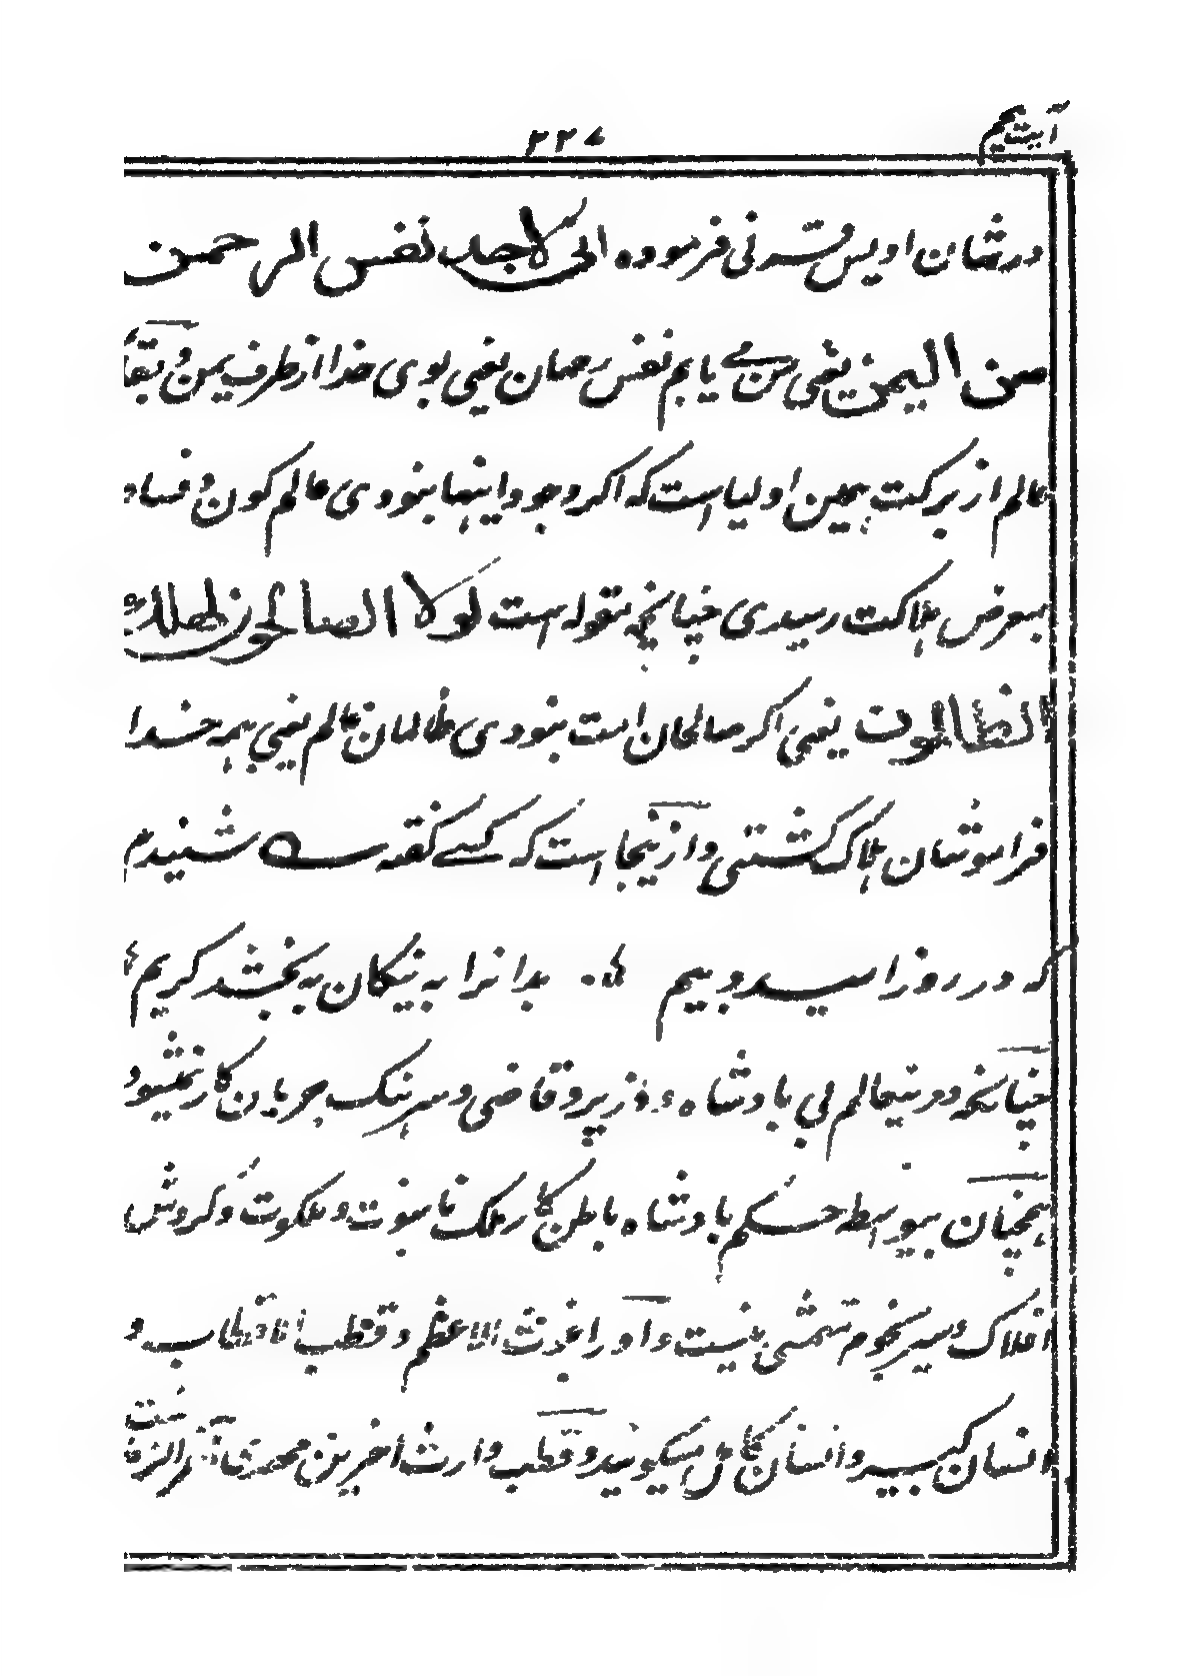 آیت یم
۲۲۷
درشان اویس قرنی فرموده انی لاجد نفس الرحمن
من الیمن یعنی من می یابم نفس رحمان یعنی بوی خدا از طرف یمن و بقا
عالم از برکت همین اولیاست که اکر وجود اینها بنودی عالم کون و فساد
بمعرض هلاکت رسیدی چنانچه مقوله است لولا الصالحون لهلک
الطالحون یعنی اکر صالحان است بنودی ظالمان عالم یعنی همه خدا
فراموشان هلاک کشتنی و ازینجا است که کسی کفته شنیدم
که در روز امید و بیم بدانرا به نیکان به بخشد کریم
چنانکه درینعالم بی بادشاه وزیر و قاضی و سرهنک جریان کار نمیشود
همچنان بیواسطه حکم بادشاه باطن کار ملک ناسوت و ملکوت و کردش
افلاک و سیر نجوم متمشی نیست و او را غوث الاعظم و قطب الاقطاب و
انسان کبیر و انسان کامل میکویند و قطب وارث آخرین